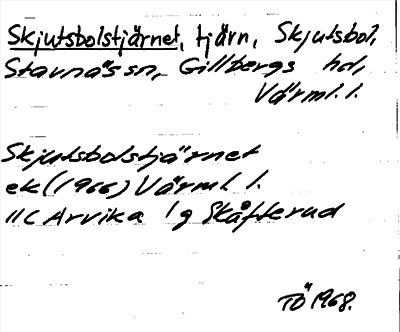 Skjutsbolstjärnet, tjärn, Skjutsbol,
Stavnäs sn, Gillbergs hd,
Värml. l.
Skjutsbolstjärnet
ek (1966) Värml. l.
11C Arvika 1g Skåfterud
TÖ 1968.